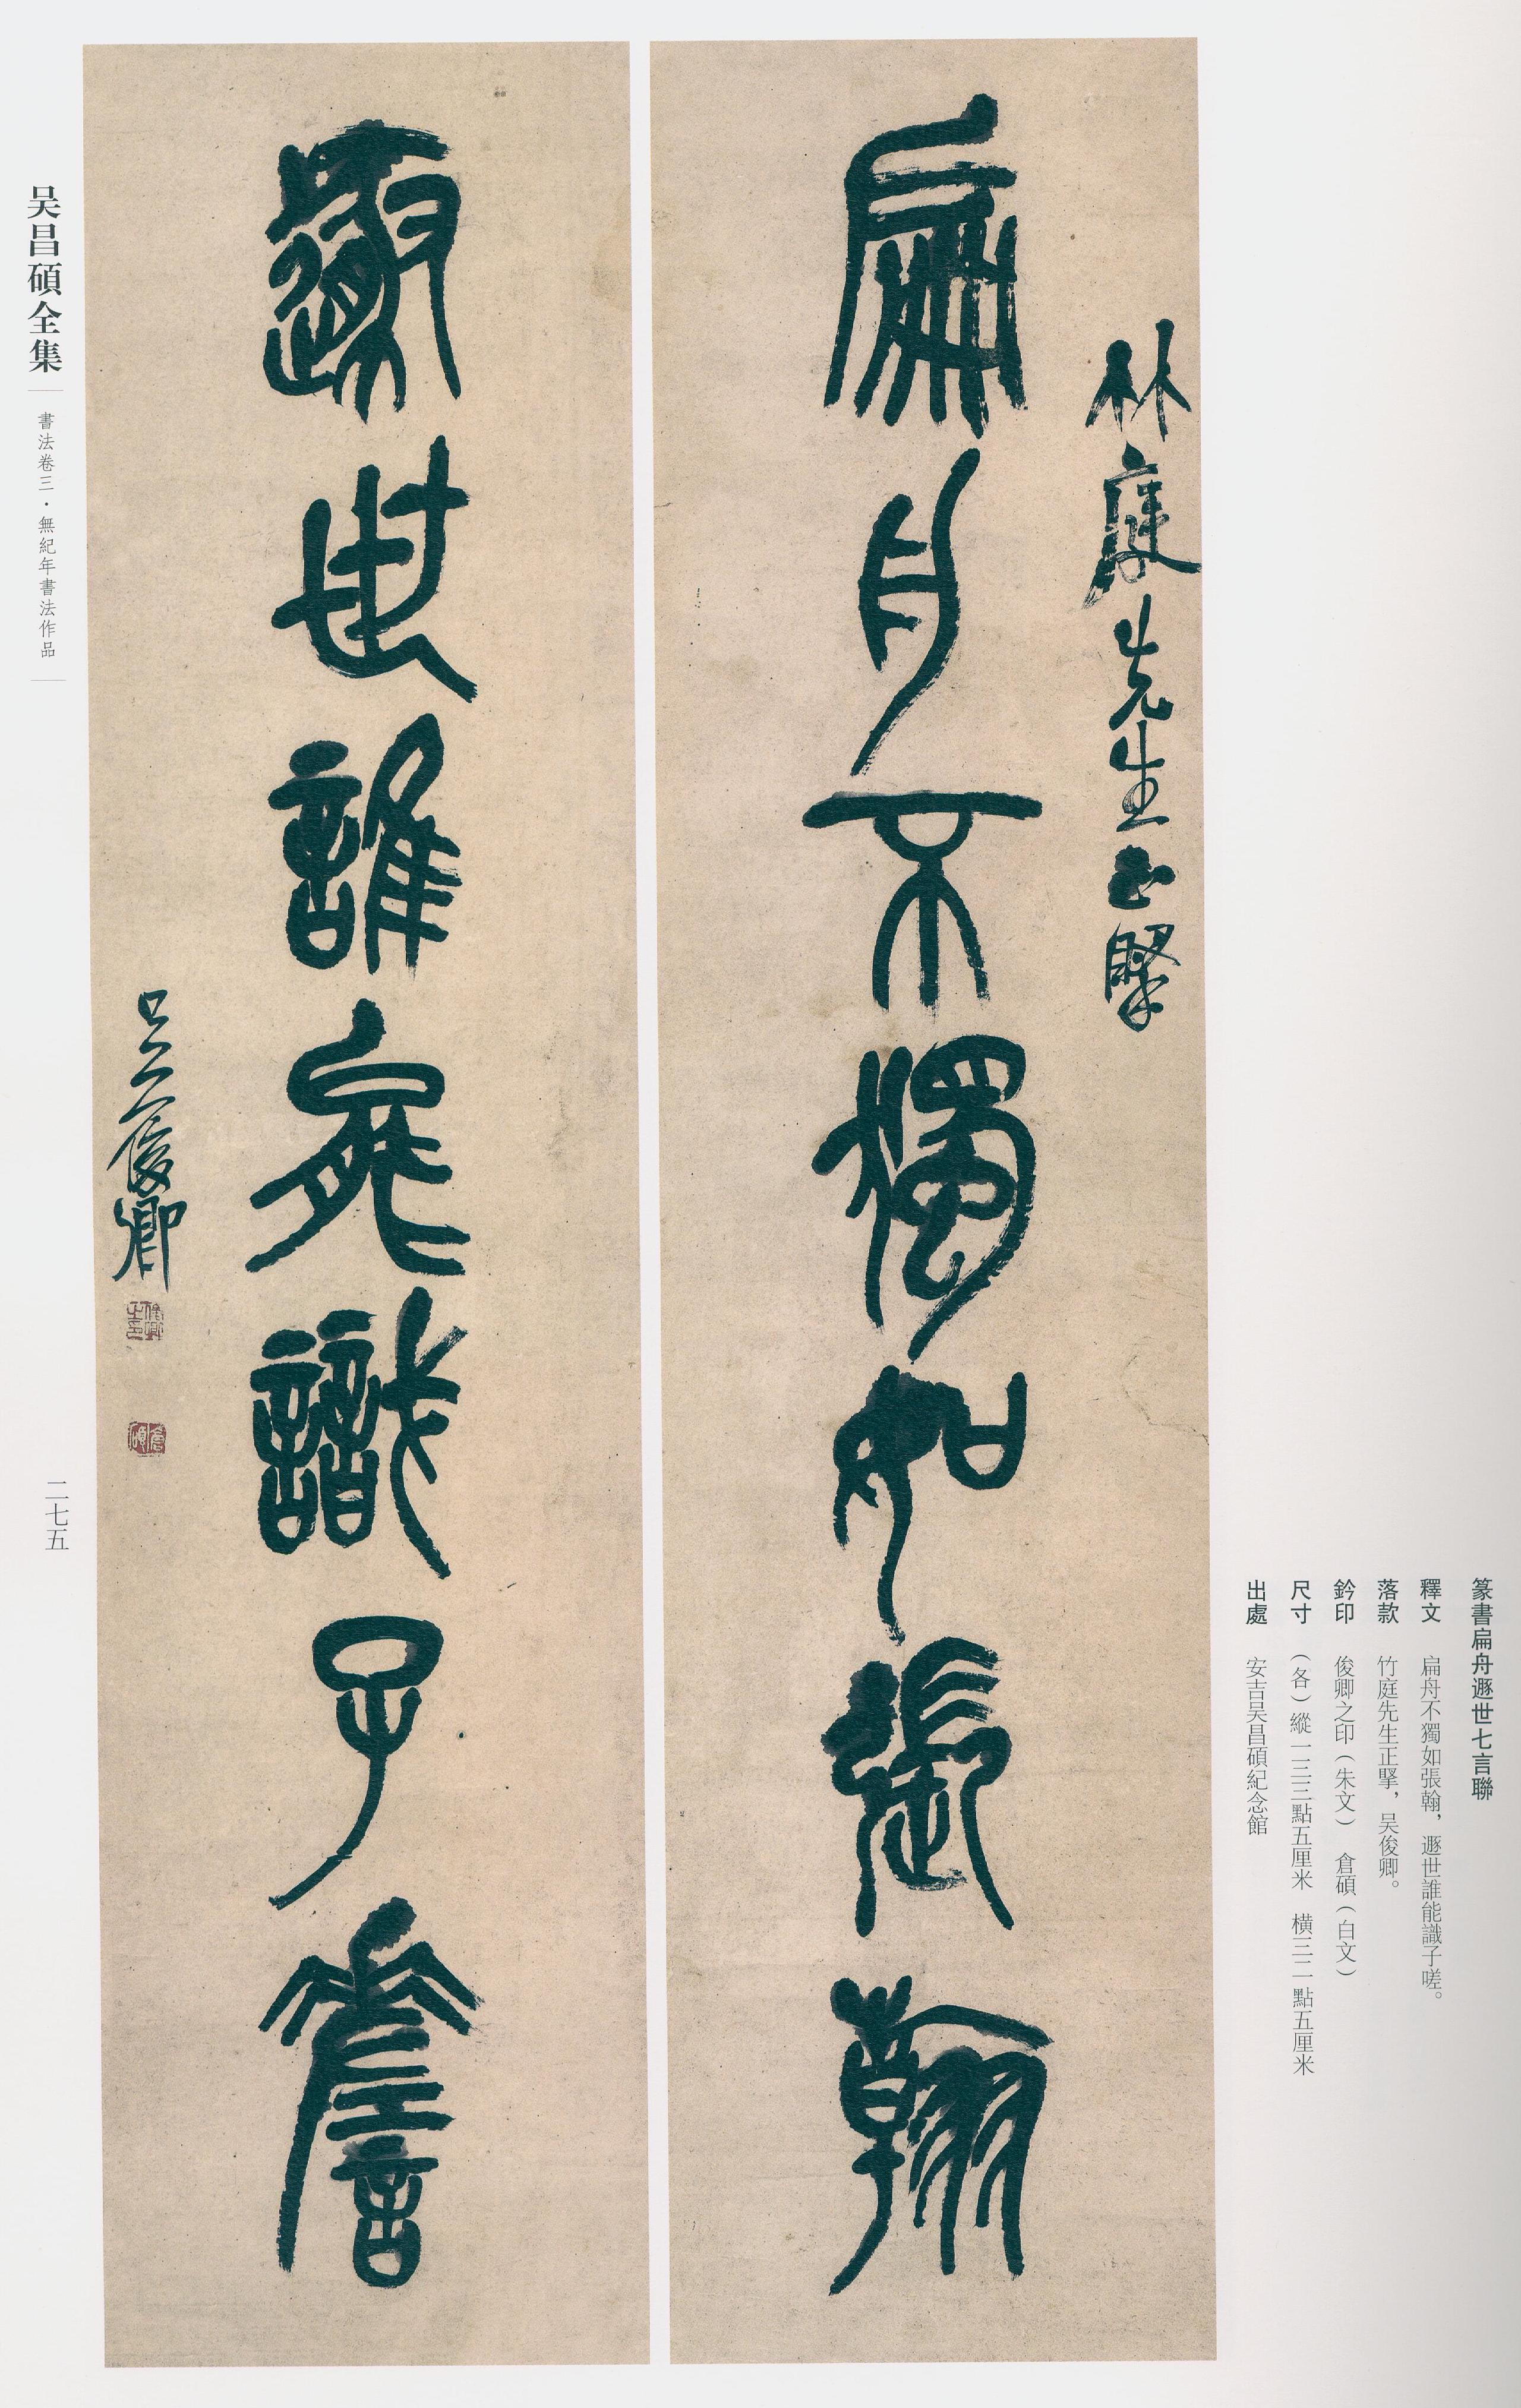 林庭先生正擥
扁舟不獨如張翰
遯世誰能識子詹
吴俊卿
俊卿之印
倉碩
篆書扁舟遯世七言聯
釋文 扁舟不獨如張翰，遯世誰能識子嗟。
落款 竹庭先生正擥，吴俊卿。
鈐印 俊卿之印（朱文） 倉碩（白文）
尺寸 （各）縱一三三點五厘米 橫三二點五厘米
出處 安吉吴昌碩紀念館
吴昌碩全集
書法卷三·無紀年書法作品
二七五